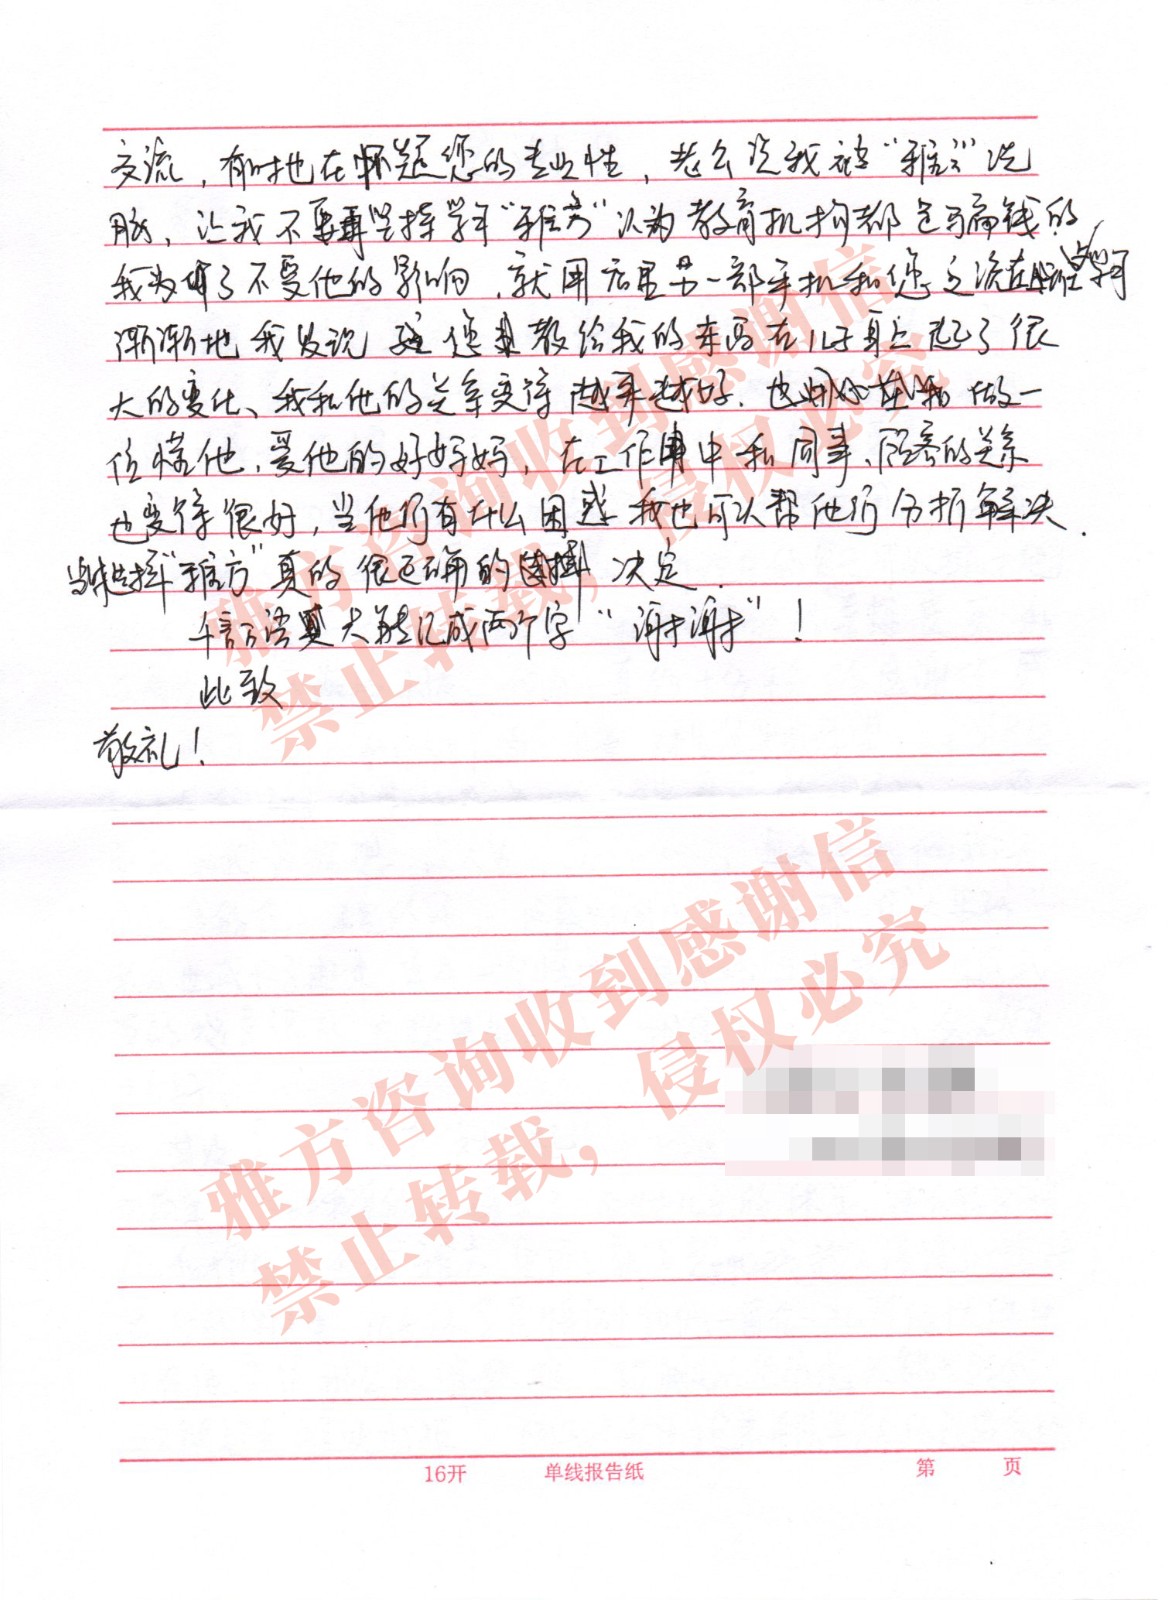 交流，有时也在怀疑您的专业性，老公说我被“雅方”洗
脑，让我不要再选择学习“雅方”认为教育机构都是骗钱的，
我为了不受他的影响，就用店里另一部手机和您交流
渐渐地我发现您教给我的东西在儿子身上起了很
大的变化、我和他的关系变得越来越好．做一
位懂他，爱他的好妈妈，在工作中和同事、顾客的关系
也变得很好，当他们有什么困惑我也可以帮他们分析解决．
选择“雅方”真的很正确的决定．
千言万语汇成两个字“谢谢”！
此致
敬礼！
雅方咨询收到感谢信
禁止转载，侵权必究
雅方咨询收到感谢信
禁止转载，侵权必究
16开 单线报告纸 第 页